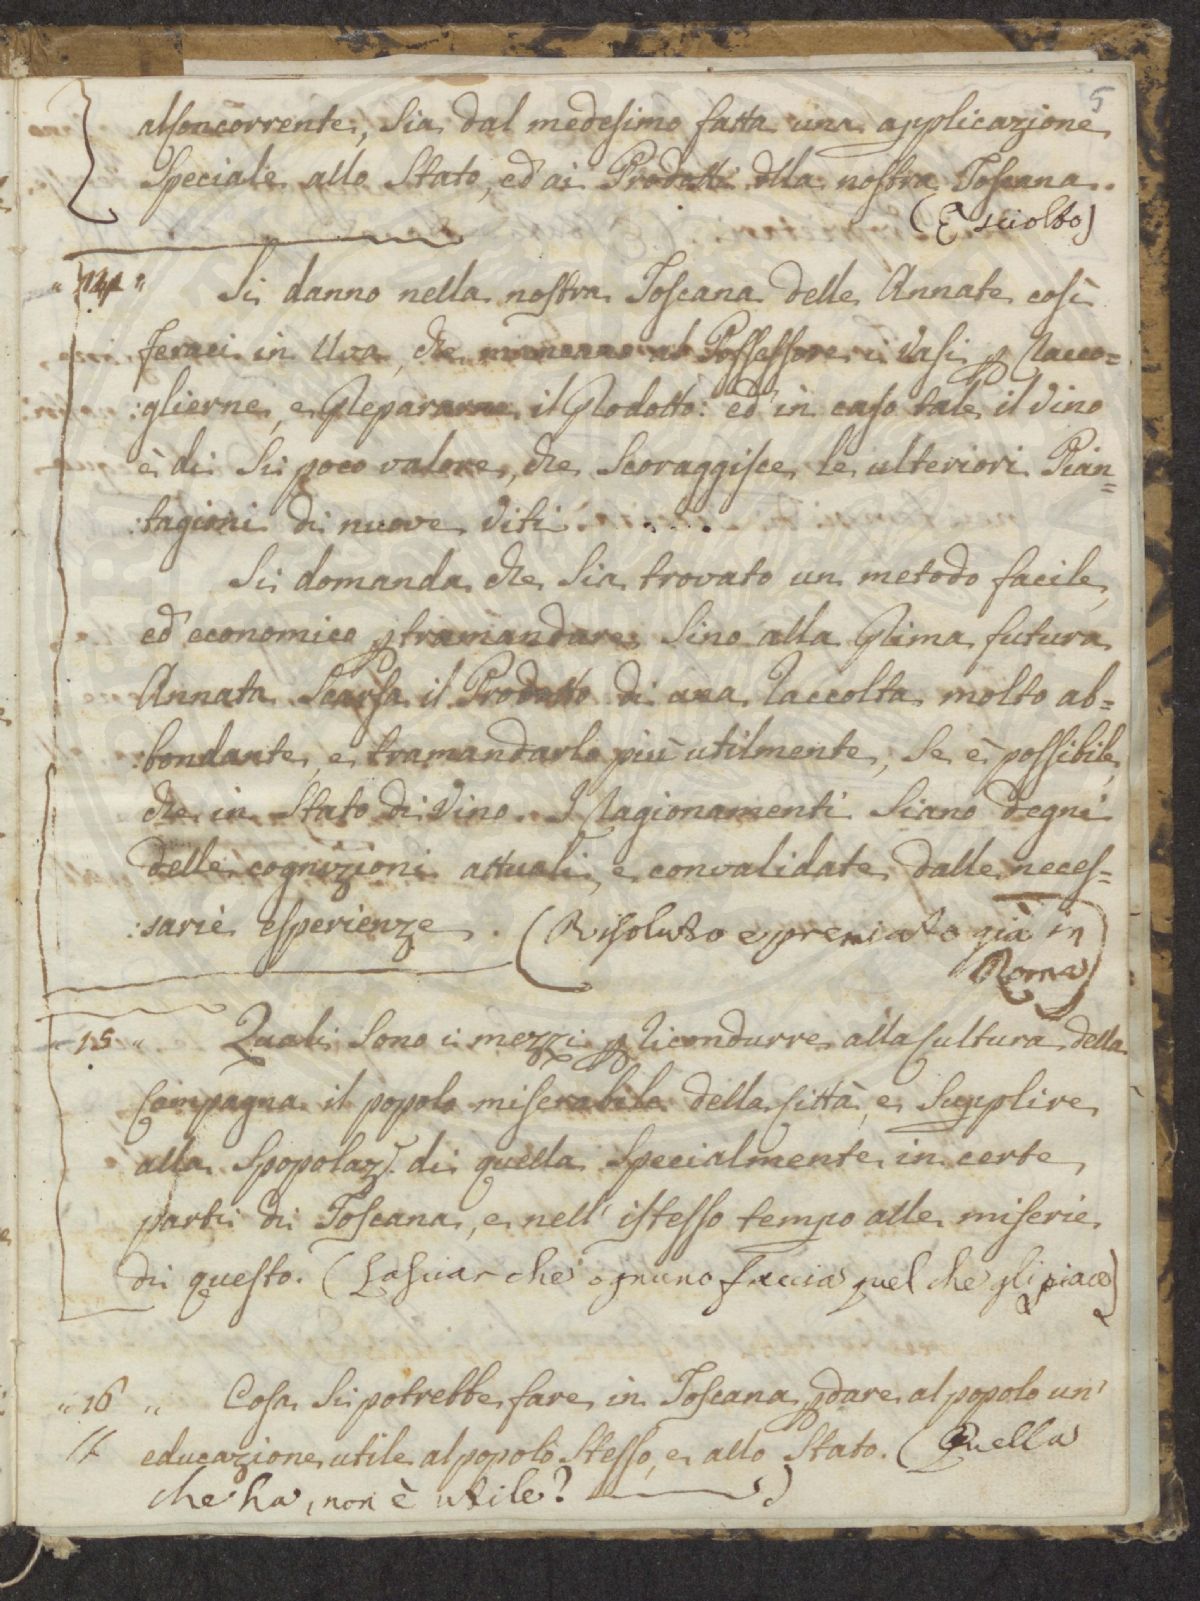 5
al Concorrente, sia dal medesimo fatta una applicazione
speciale allo Stato, ed ai Prodotti della nostra Toscana.
(È sciolto)
„ 14 „ Si danno nella nostra Toscana delle Annate così
feraci in Uva, che mancano al Possessore i Vasi p Racco=
:glierne, e Prepararne il Prodotto: ed in caso tale il Vino
è di sì poco valore, che scoraggisce le ulteriori Pian=
:tagioni di nuove Viti.....
Si domanda che sia trovato un metodo facile,
ed economico p tramandare sino alla Prima futura
Annata Scarsa il Prodotto di una Raccolta molto ab=
:bondante, e tramandarlo più utilmente, se è possibile,
che in Stato di Vino. I Ragionamenti siano degni
delle cognizioni attuali, e convalidate dalle neces=
:sarie esperienze. (Risoluto e premiato già in
Roma)
„ 15 „ Quali sono i mezzi p Ricondurre alla Cultura della
Campagna il popolo miserabile della Città, e Supplire
alla Spopolaz. di quella specialmente in certe
parti di Toscana, e nell' istesso tempo alle miserie
di questo. (Lasciar che ognuno faccia quel che gli piace)
„ 16 „ Cosa si potrebbe fare in Toscana p dare al popolo un'
educazione utile al popolo stesso, e allo Stato. (Quella
che ha, non è utile?)